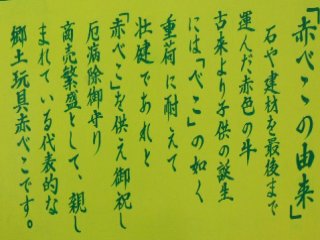 「赤べこの由来」
石や建材を最後まで
運んだ赤色の斗
古来より子供の誕生
には「べこ」の如く
重荷に耐えて
壮健であれと
「赤べこ」を供え御祝し
厄病除御守り
商売繁盛として、親し
まれている代表的な
郷土玩具赤べこです。